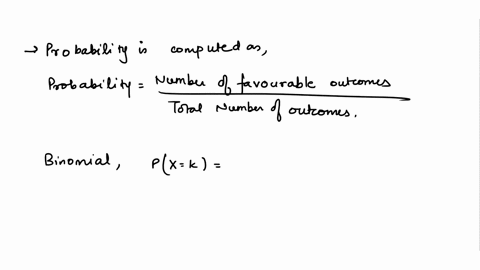 → Probability is computed as,
Probability = Number of favourable outcomes
Total Number of outcomes.
Binomial, P(X=k) =